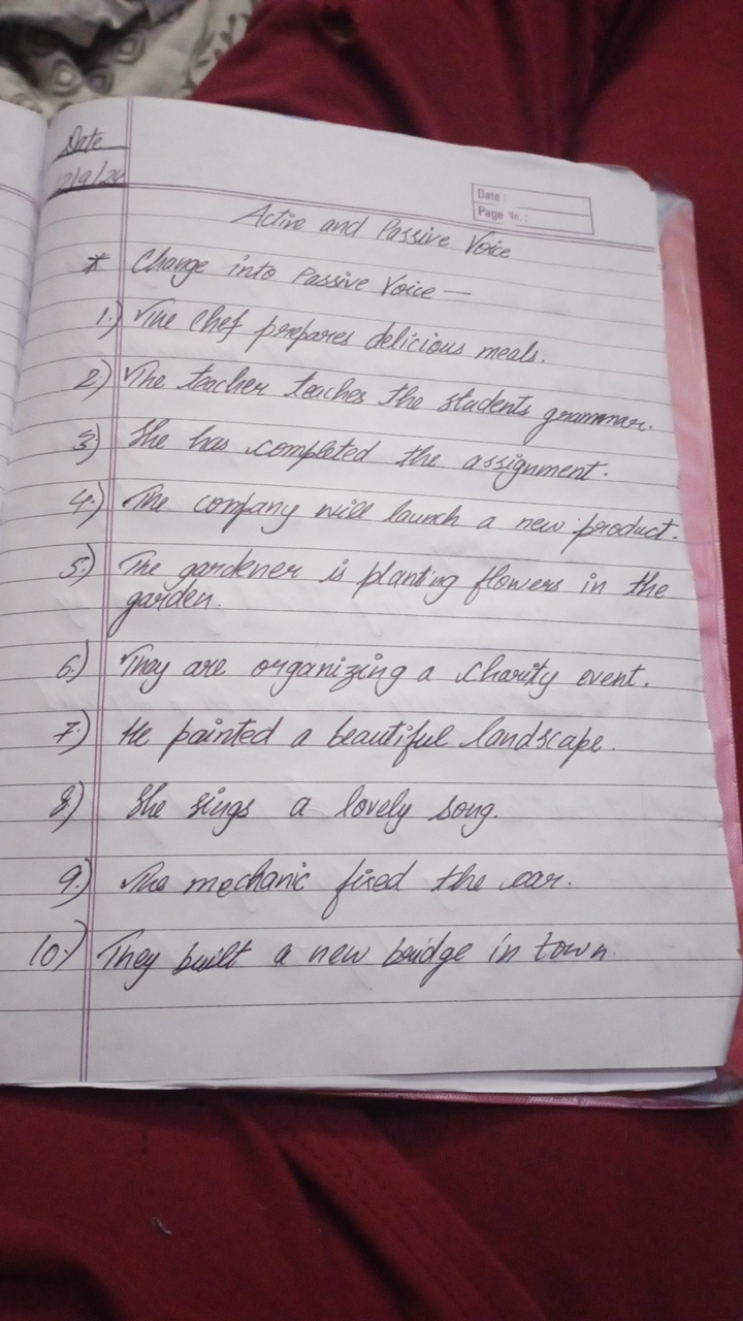 Date
12/9/24
Date :
Page No. :
Active and Passive Voice
* Change into Passive Voice —
1.) The Chef prepares delicious meals.
2.) The teacher teaches the students grammar.
3.) She has completed the assignment.
4.) The company will launch a new product.
5.) The gardener is planting flowers in the
garden.
6.) They are organizing a charity event.
7.) He painted a beautiful landscape.
8.) She sings a lovely song.
9.) The mechanic fixed the car.
10.) They built a new bridge in town.